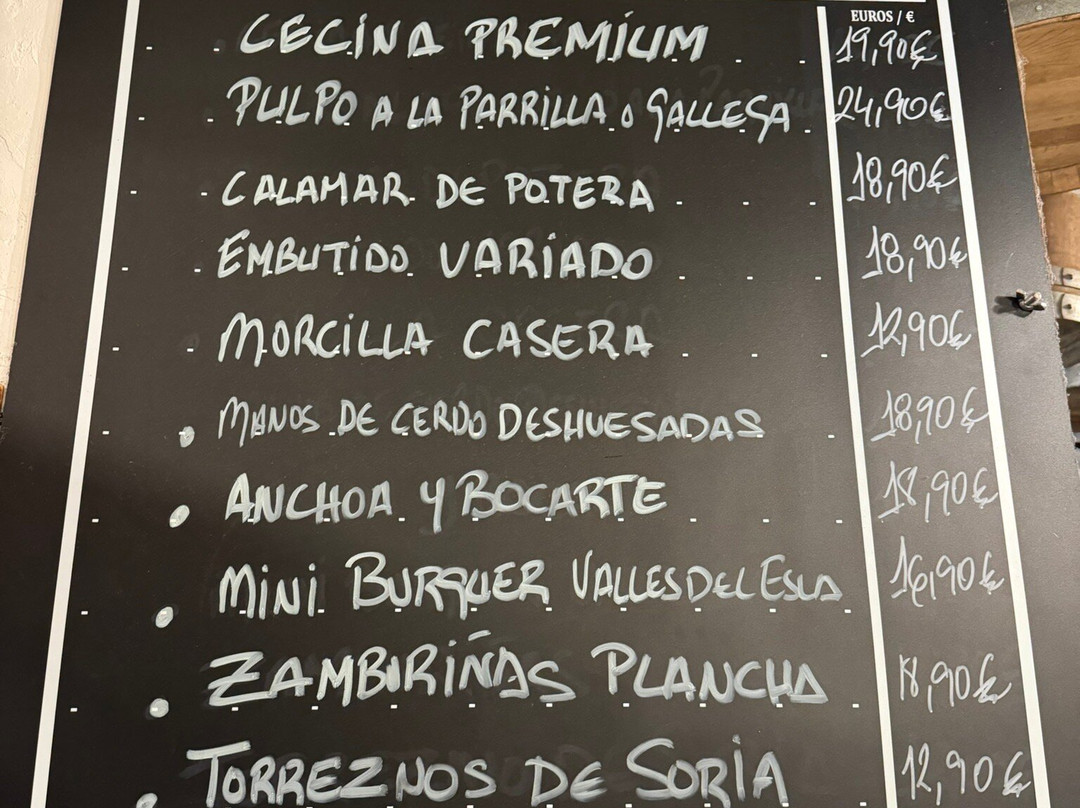 EUROS / €
CECINA PREMIUM 19,90€
PULPO A LA PARRILLA O GALLEGA 24,90€
CALAMAR DE POTERA 18,90€
EMBUTIDO VARIADO 18,90€
MORCILLA CASERA 12,90€
MANOS DE CERDO DESHUESADAS 18,90€
ANCHOA Y BOCARTE 18,90€
MINI BURGUER VALLES DEL ESLA 16,90€
ZAMBIRIÑAS PLANCHA 18,90€
TORREZNOS DE SORIA 12,90€